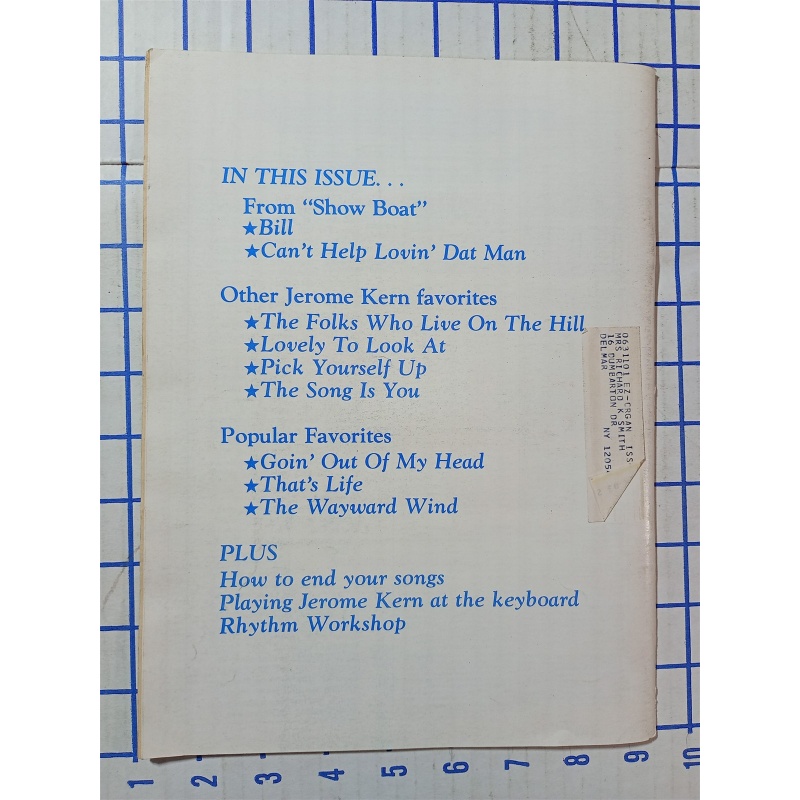 IN THIS ISSUE. . .
From "Show Boat"
★Bill
★Can't Help Lovin' Dat Man
Other Jerome Kern favorites
★The Folks Who Live On The Hill
★Lovely To Look At
★Pick Yourself Up
★The Song Is You
Popular Favorites
★Goin' Out Of My Head
★That's Life
★The Wayward Wind
PLUS
How to end your songs
Playing Jerome Kern at the keyboard
Rhythm Workshop
0631101 EZ-ORGAN ISS
MRS RICHARD K SMITH
16 DUMBARTON DR
DELMAR NY
1 2 3 4 5 6 7 8 9 10